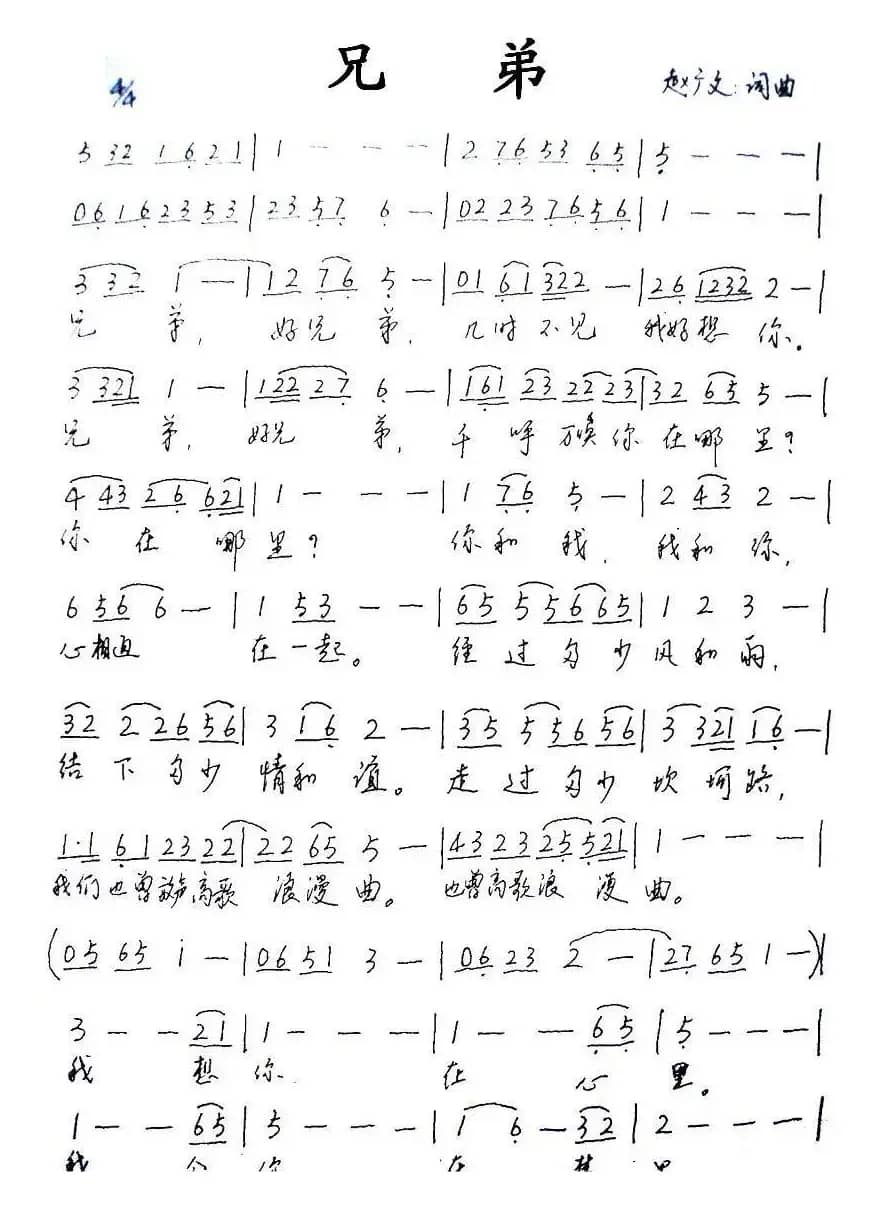 兄 弟
4/4
赵广文:词曲
5 32 1 6 2 1 | 1 — — — | 2 76 53 65 | 5 — — — |
06 16 23 53 | 23 57 6 — | 02 23 76 56 | 1 — — — |
3 32 1 — | 12 76 5 — | 01 61 322 — | 26 1232 2 — |
兄 弟, 好兄 弟, 几时 不见 我好想 你。
3 321 1 — | 122 27 6 — | 161 23 22 23 | 32 65 5 — |
兄 弟, 好兄 弟, 千 呼 万唤 你 在 哪 里?
4 43 26 621 | 1 — — — | 1 76 5 — | 2 43 2 — |
你 在 哪 里? 你和 我, 我和 你,
6 56 6 — | 1 53 — — | 65 5 56 65 | 1 2 3 — |
心相连 在一起。 经 过 多 少 风和 雨,
32 2 26 56 | 3 16 2 — | 35 5 56 56 | 3 321 16 — |
结 下 多少 情和 谊。 走 过 多少 坎 坷路,
1·1 61 23 22 | 22 65 5 — | 43 23 25 521 | 1 — — — |
我们也曾放声高歌 浪漫 曲。 也曾高歌浪 漫 曲。
(05 65 i — | 06 51 3 — | 06 23 2 — | 27 65 1 —) |
3 — — 21 | 1 — — — | 1 — — 65 | 5 — — — |
我 想 你 在 心 里。
1 — — 65 | 5 — — — | 1 6 — 32 | 2 — — — |